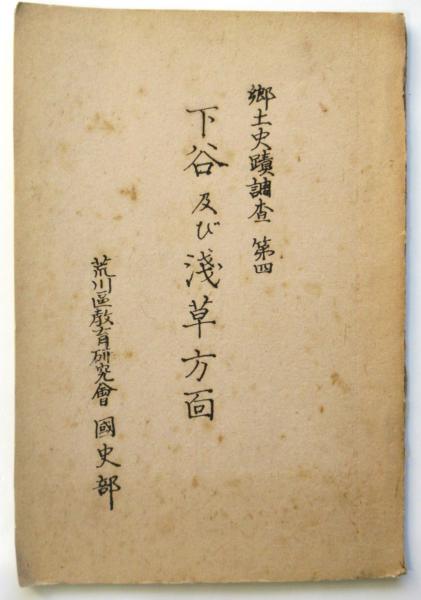 郷土史蹟調査 第四
下谷及び淺草方面
荒川區教育研究會 國史部